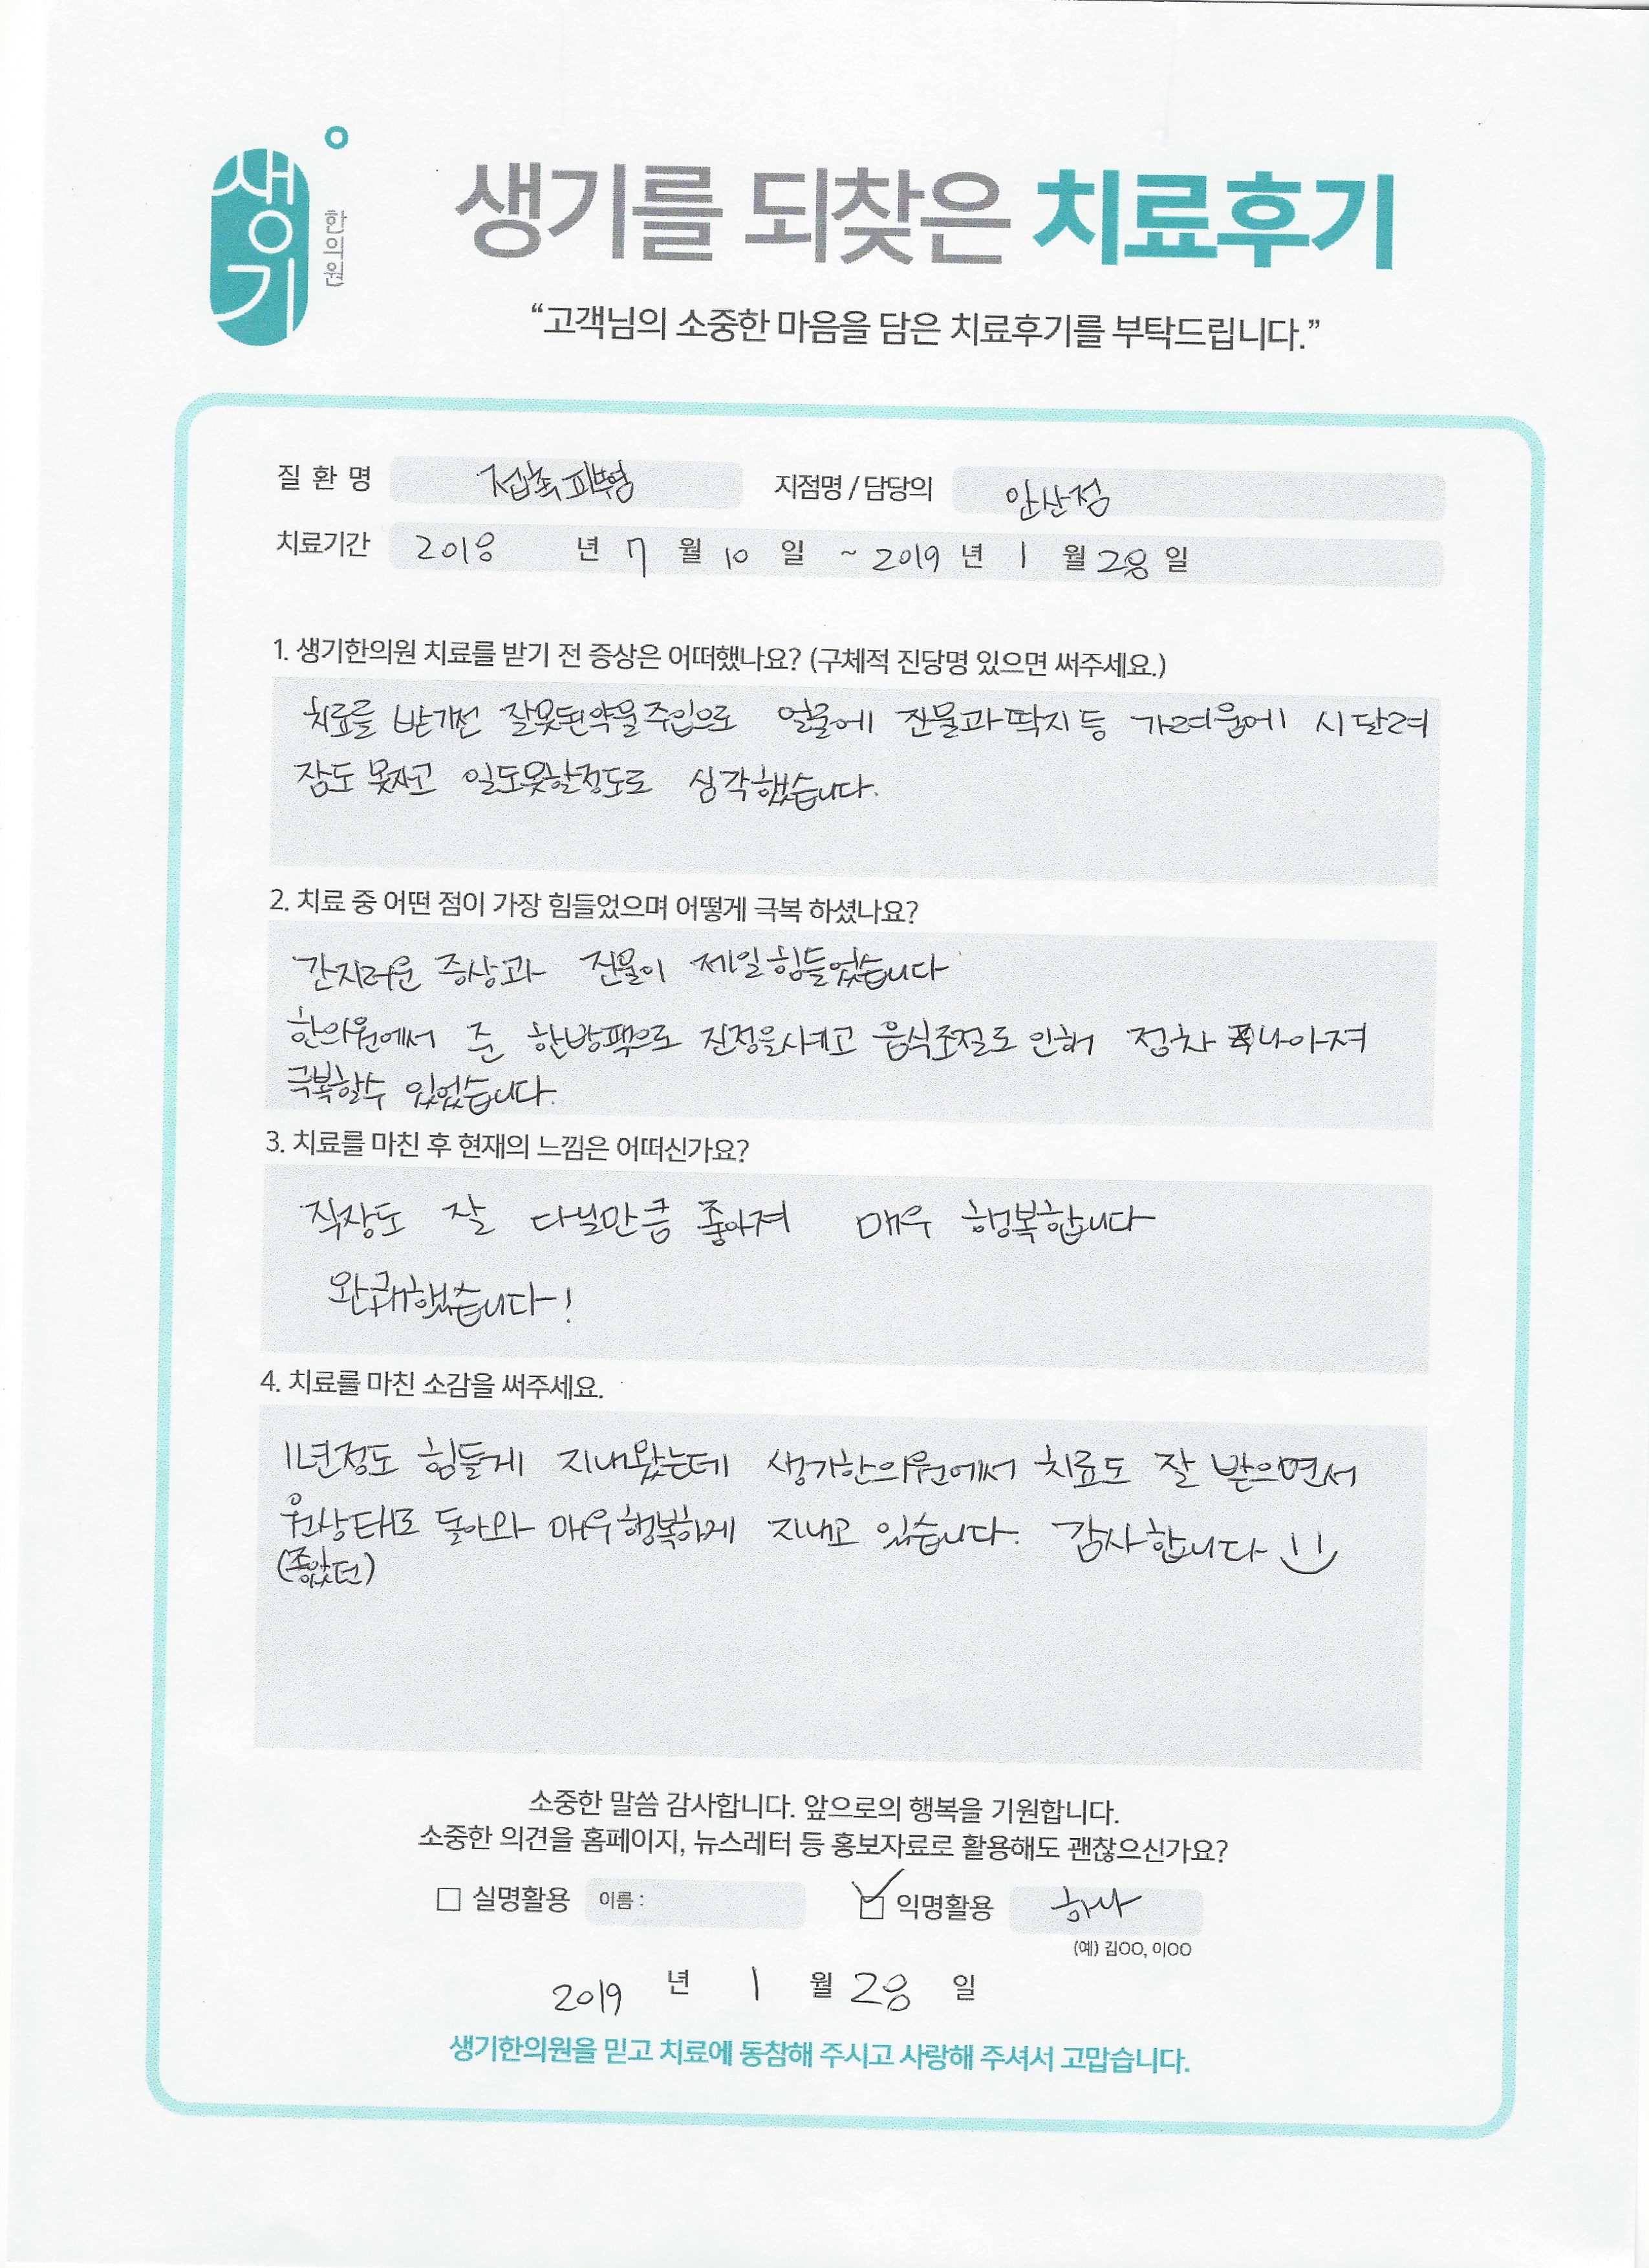 생기 한의원
생기를 되찾은 치료후기
“고객님의 소중한 마음을 담은 치료후기를 부탁드립니다.”
질 환 명 접촉피부염 지점명 / 담당의 안산점
치료기간 2018 년 7 월 10 일 ~ 2019 년 1 월 28 일
1. 생기한의원 치료를 받기 전 증상은 어떠했나요? (구체적 진당명 있으면 써주세요.)
치료를 받기전 잘못된약물주입으로 얼굴에 진물과딱지등 가려움에 시달려
잠도 못자고 일도못할정도로 심각했습니다.
2. 치료 중 어떤 점이 가장 힘들었으며 어떻게 극복 하셨나요?
간지러운 증상과 진물이 제일힘들었습니다
한의원에서 준 한방팩으로 진정을시키고 음식조절로 인해 점차 나아져
극복할수 있었습니다.
3. 치료를 마친 후 현재의 느낌은 어떠신가요?
직장도 잘 다닐만큼 좋아져 매우 행복합니다
완쾌했습니다!
4. 치료를 마친 소감을 써주세요.
1년정도 힘들게 지내왔는데 생기한의원에서 치료도 잘 받으면서
원상태로 돌아와 매우행복하게 지내고 있습니다. 감사합니다
(좋았던)
소중한 말씀 감사합니다. 앞으로의 행복을 기원합니다.
소중한 의견을 홈페이지, 뉴스레터 등 홍보자료로 활용해도 괜찮으신가요?
실명활용 이름 : 익명활용 하나
(예) 김OO, 이OO
2019 년 1 월 28 일
생기한의원을 믿고 치료에 동참해 주시고 사랑해 주셔서 고맙습니다.